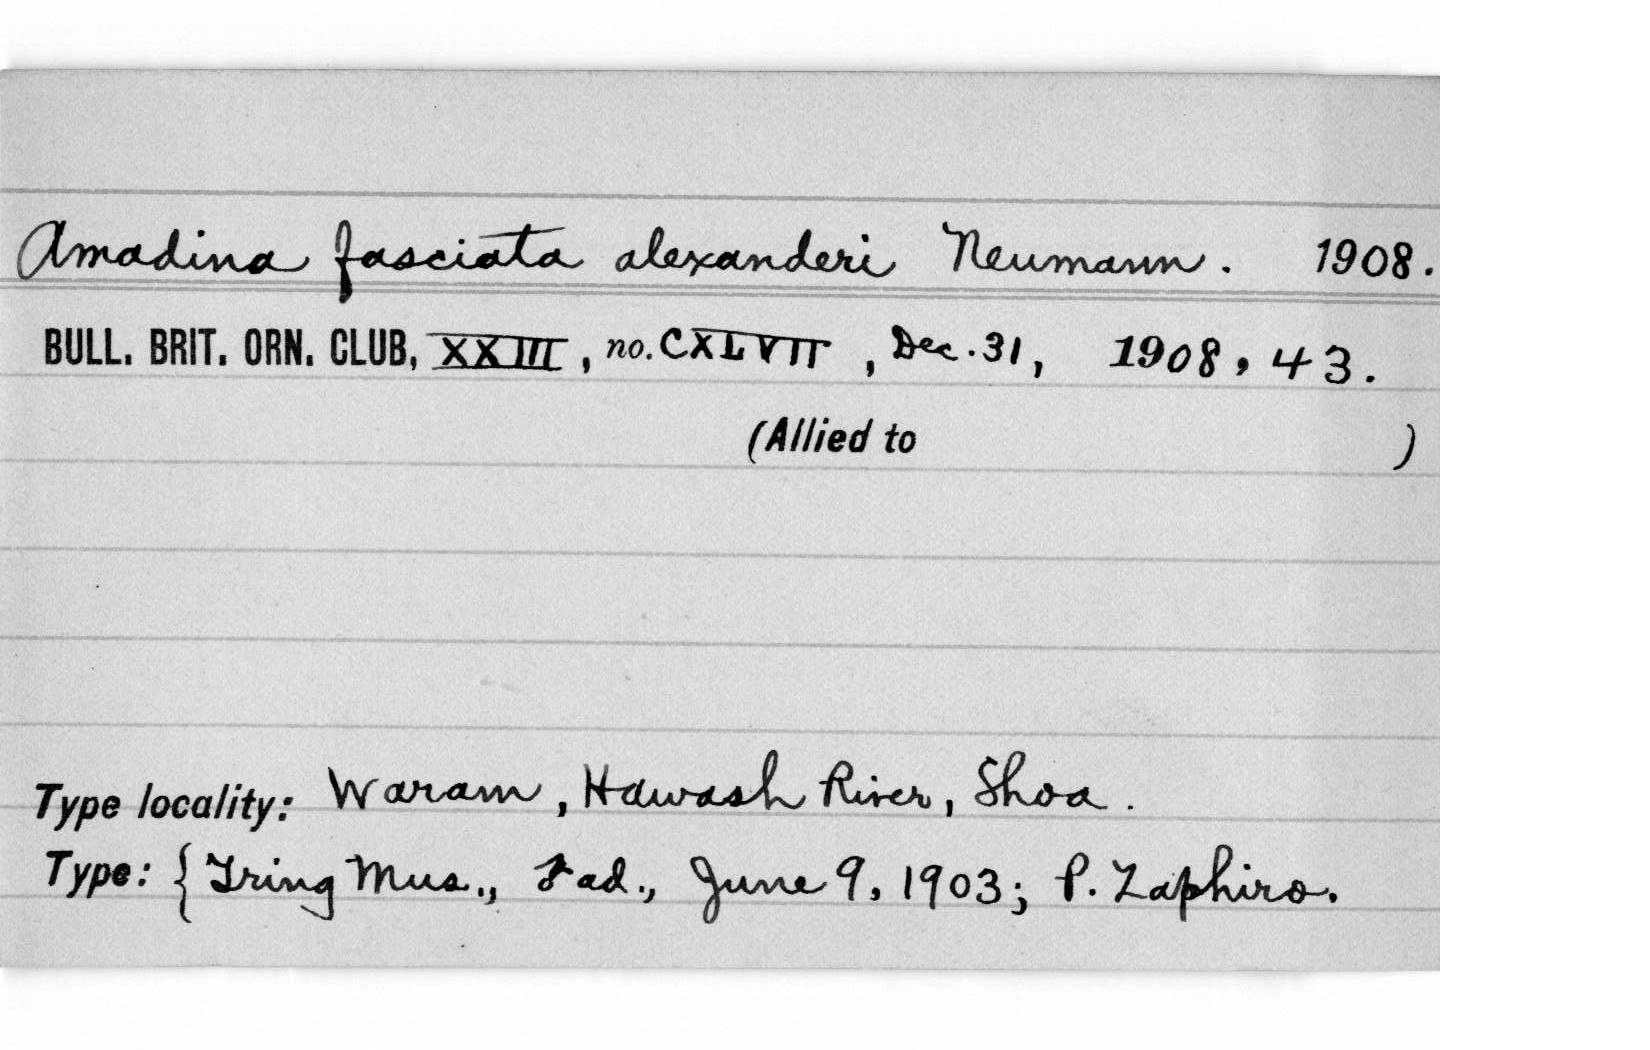 Amadina fasciata alexanderi Neumann. 1908.
BULL. BRIT. ORN. CLUB, XXIII, no. CXLVII, Dec. 31, 1908, 43.
(Allied to )
Type locality: Waram, Hawash River, Shoa.
Type: { Tring Mus., ad., June 9, 1903; P. Zaphiro.